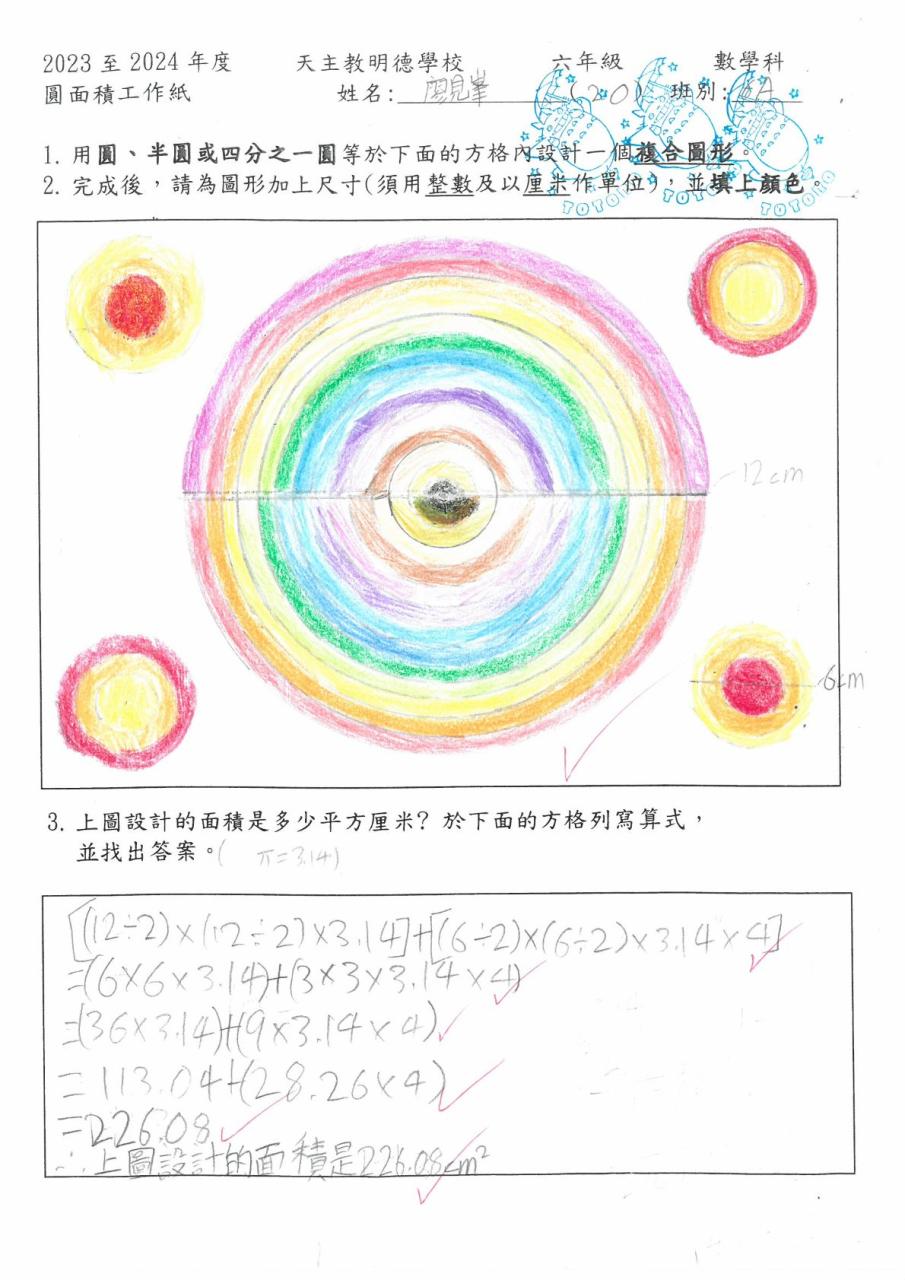 2023 至 2024 年度 天主教明德學校 六年級 數學科
圓面積工作紙 姓名: 見峯 (20) 班別: 6A
1. 用圓、半圓或四分之一圓等於下面的方格內設計一個複合圖形。
2. 完成後，請為圖形加上尺寸(須用整數及以厘米作單位)，並填上顏色。
TOTORO TOTORO TOTORO
12cm
6cm
3. 上圖設計的面積是多少平方厘米? 於下面的方格列寫算式，
並找出答案。( π=3.14)
[(12÷2)×(12÷2)×3.14]+[(6÷2)×(6÷2)×3.14×4]
=(6×6×3.14)+(3×3×3.14×4)
=(36×3.14)+(9×3.14×4)
=113.04+(28.26×4)
=226.08
∴上圖設計的面積是226.08cm²